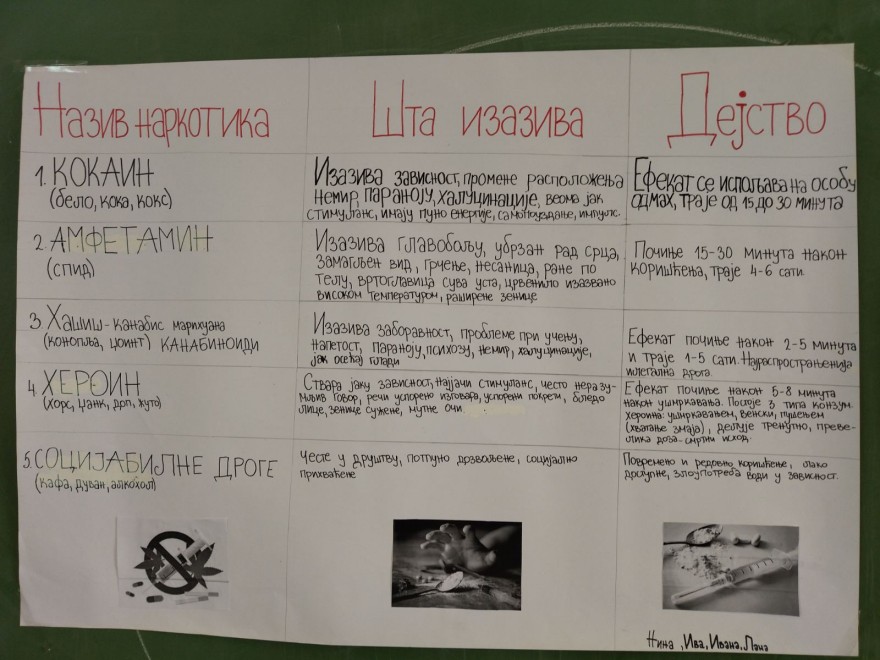 Назив наркотика
Шта изазива
Дејство
1. КОКАИН
(бело, кока, кокс)
Изазива зависност, промене расположења
немир, параноју, халуцинације, веома јак
стимуланс, имају пуно енергије, самопоуздање, импулс.
Ефекат се испољава на особу
одмах, траје од 15 до 30 минута
2. АМФЕТАМИН
(спид)
Изазива главобољу, убрзан рад срца,
замагљен вид, грчење, несаница, ране по
телу, вртоглавица сува уста, црвенило изазвано
високом температуром, раширене зенице
Почиње 15-30 минута након
коришћења, траје 4-6 сати.
3. Хашиш - канабис марихуана
(конопља, џоинт) КАНАБИНОИДИ
Изазива заборавност, проблеме при учењу,
напетост, параноју, психозу, немир, халуцинације,
јак осећај глади
Ефекат почиње након 2-5 минута
и траје 1-5 сати. Најраспрострањенија
илегална дрога.
4 ХЕРОИН
(хорс, џанк, доп, жуто)
Ствара јаку зависност, најјачи стимуланс, често неразу-
мљив говор, речи успорено изговара, успорени покрети, бледо
лице, зенице сужене, мутне очи.
Ефекат почиње након 5-8 минута
након ушмркавања. Постоје 3 типа конзум.
хероина: ушмркавањем, венски, пушењем
(хватање змаја), делује тренутно, преве-
лика доза - смртни исход.
5. СОЦИЈАБИЛНЕ ДРОГЕ
(кафа, дуван, алкохол)
Честе у друштву, потпуно дозвољене, социјално
прихваћене
Повремено и редовно коришћење, лако
доступне, злоупотреба води у зависност.
Нина, Ива, Ивана, Лана